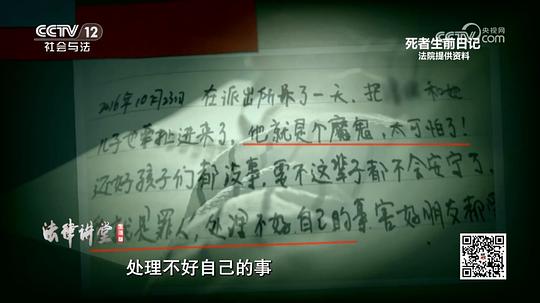 CCTV 12
社会与法
央视网
CCTV.com
死者生前日记
法院提供资料
2016年10月23日 在派出所呆了一天,把 和她
儿子也牵扯进来了,他就是个魔鬼,太可怕了!
还好孩子们都没事,要不这辈子都不会安宁了,
就是罪人,处理不好自己的事害好朋友都
法律讲堂
处理不好自己的事